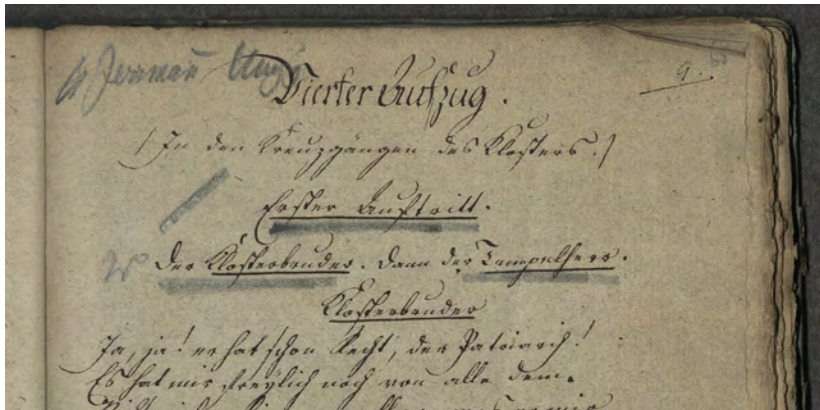 Vierter Aufzug.
9.
/: In den Kreuzgängen des Klosters :/
Erster Auftritt.
Der Klosterbruder. Dann der Tempelherr.
Klosterbruder
Ja, ja! er hat schon Recht, der Patriarch!
Es hat mir freylich noch von alle dem,